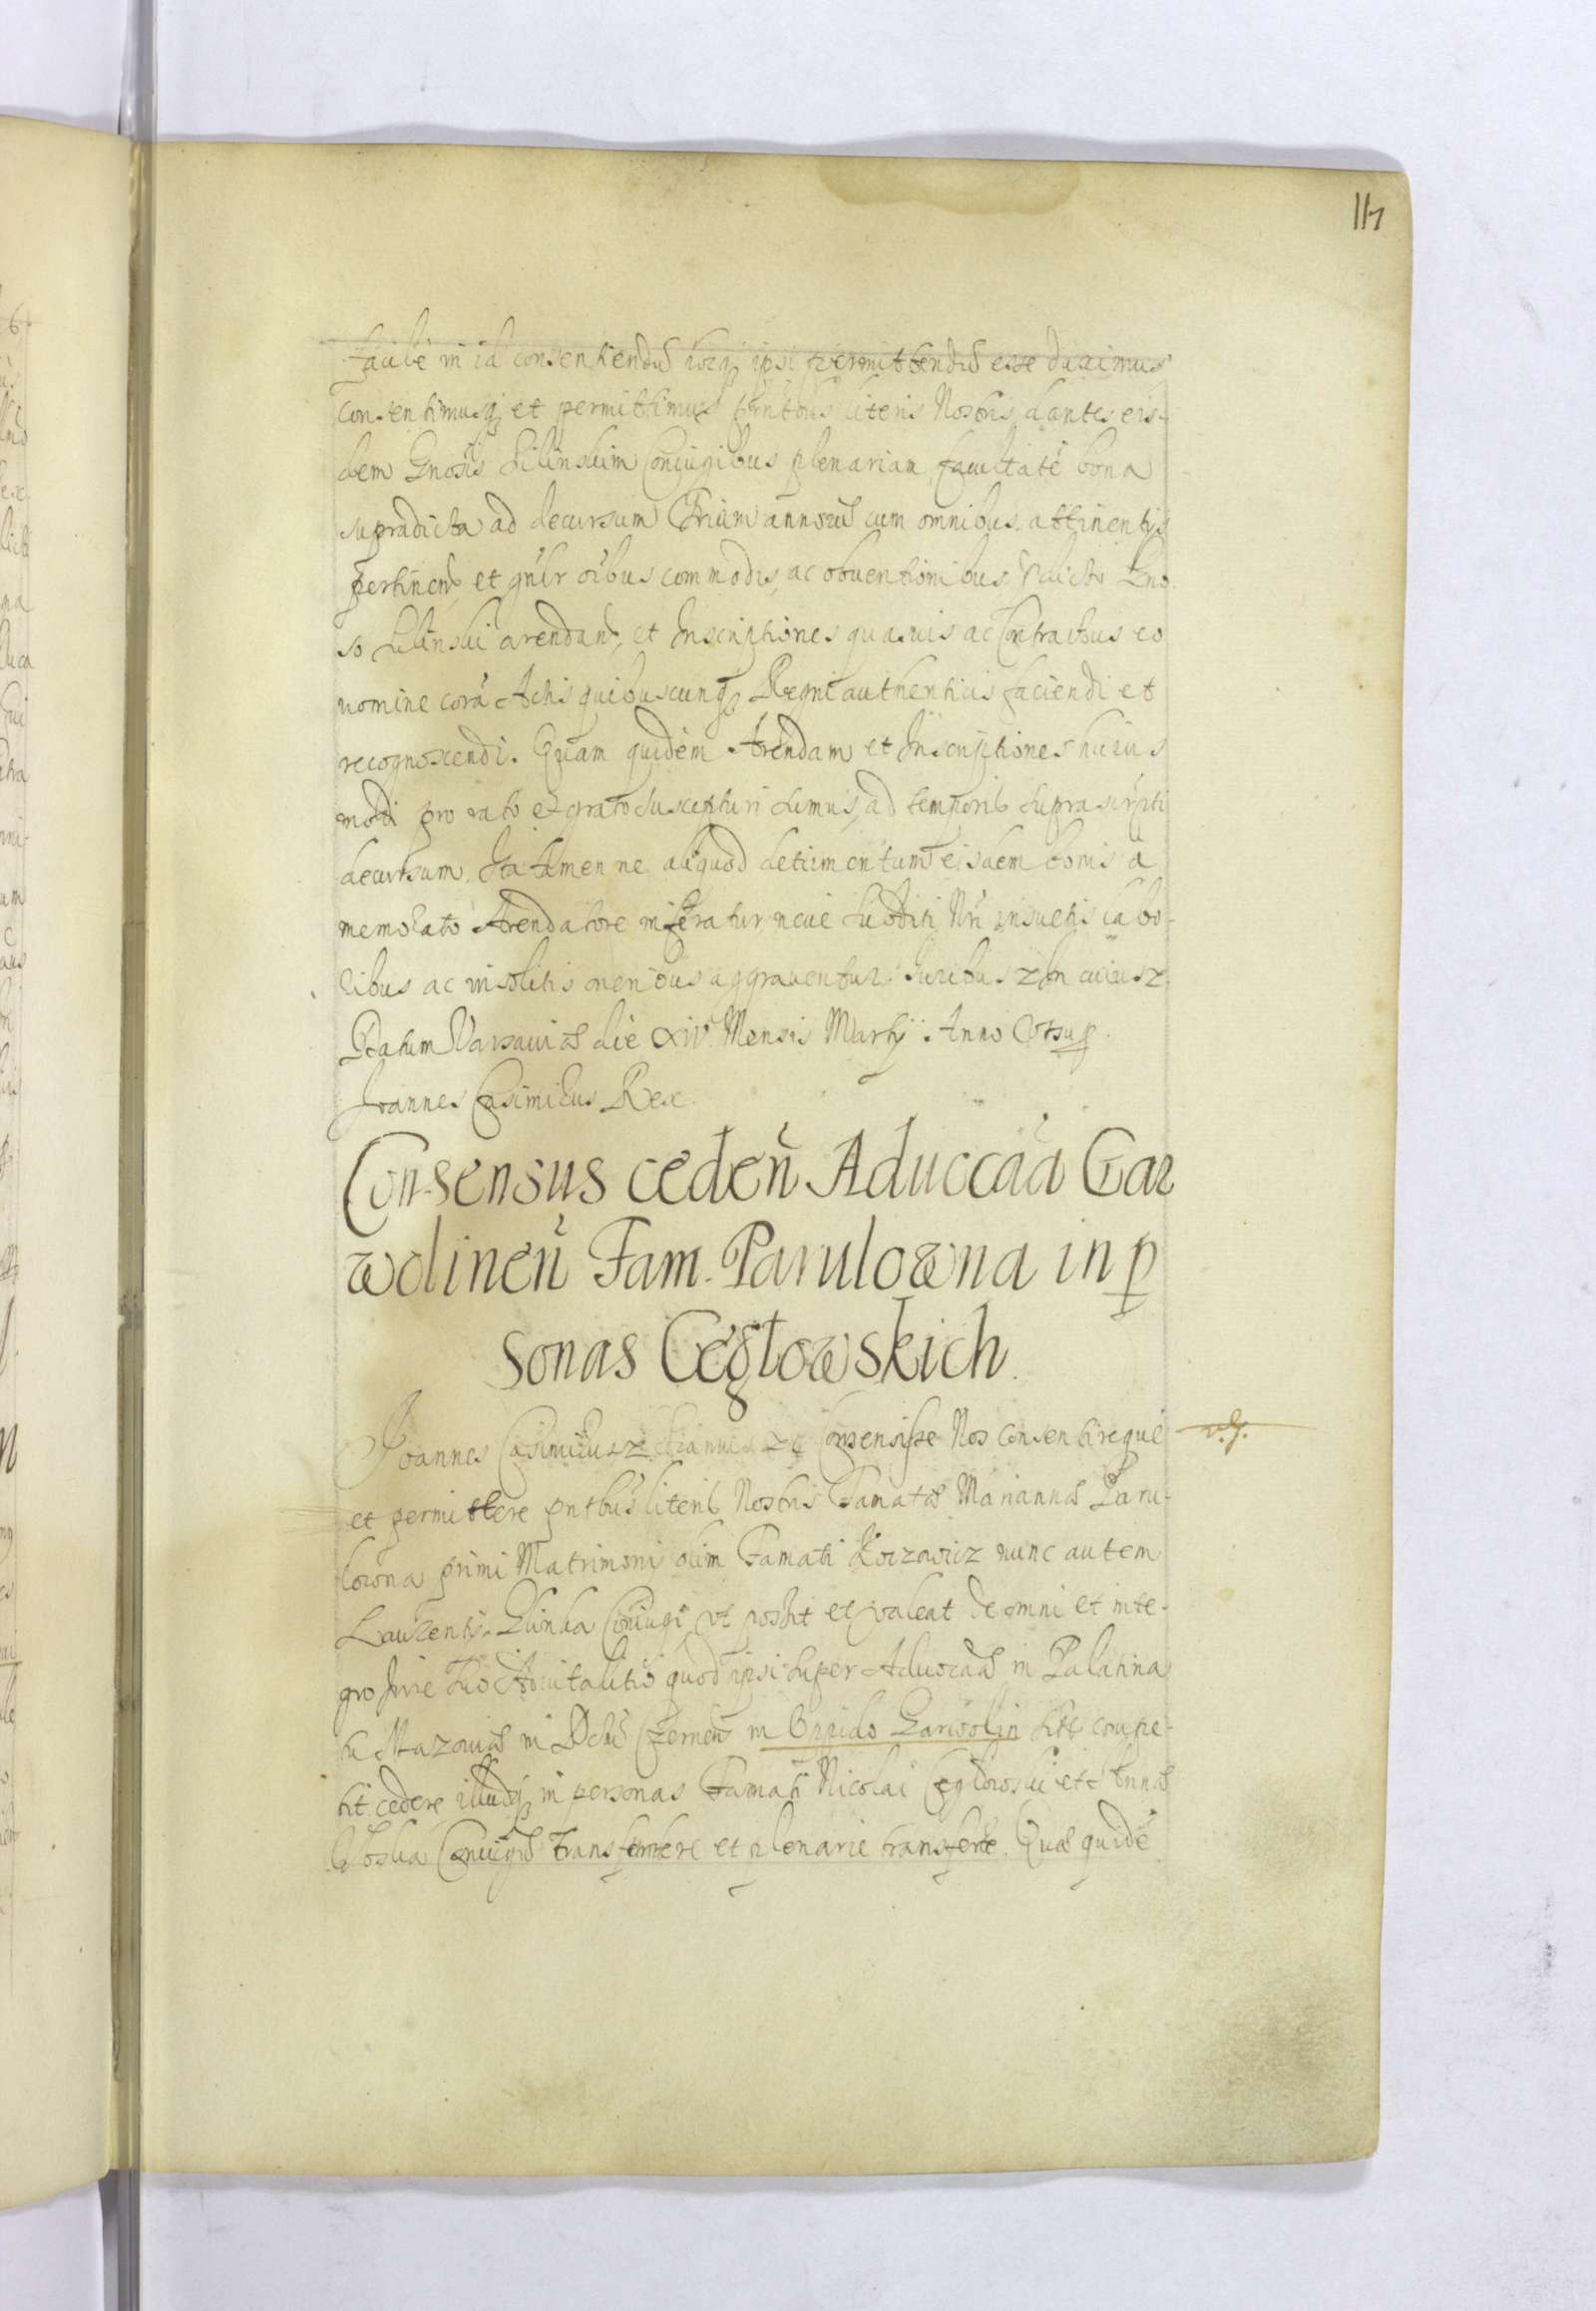 117
facile in id consentiendũ hocq; ipsi permittendũ esse duximus
consentimusq; et permittimus pñtibus literis Nostris dantes eis-
dem Gnosis Lilinskim Coniugibus plenariam facultatẽ bona
supradicta ad decursum Trium annorũ cum omnibus attinentijs
pertinen, et gñlr oĩbus commodis, ac obuentionibus Gno
so Lilinski arendand, et Inscriptiones quasuis ac Contractus eo
nomine corã Actis quibuscunq; Regni authenticis faciendi et
recognoscendi. Quam quidem Arendam et Inscriptiones huius
modi pro rato et grato suscepturi sumus, ad temporis suprascripti
decursum. Ita tamen ne aliquod detrimentum eisdem bonis à
memorato Arendatore inferatur neue subditi Nri insuetis labo-
ribus ac insolitis oneribus aggrauentur. Iuribus z cuius z
Datum Varsauiæ die XIV Mensis Martij. Anno Utsup.
Joannes Casimirus Rex.
Consensus cedeñ Aduccãa Gar
wolineñ Fam. Parulowna in p
sonas Cegłowskich.
Joannes Casimirus z. z Consensisse Nos Consentireque
et permittere pntbus literis Nostris Famatæ Mariannæ Paru-
lowna primi Matrimonij olim Famati Koczowicz nunc autem
Laurentij Glinka Coniugi, vt possit et valeat de omni et inte-
gro Jure suo Aduitalitio quod ipsi super Aduocaã in Palatina
tu Mazouiæ in Czernen in Oppido Garwolin sitã compe-
tit cedere illudq; in personas Famati Nicolai Ceglowski et Annæ
Coniugũ transfundere et plenarie transferre. Quã quidẽ